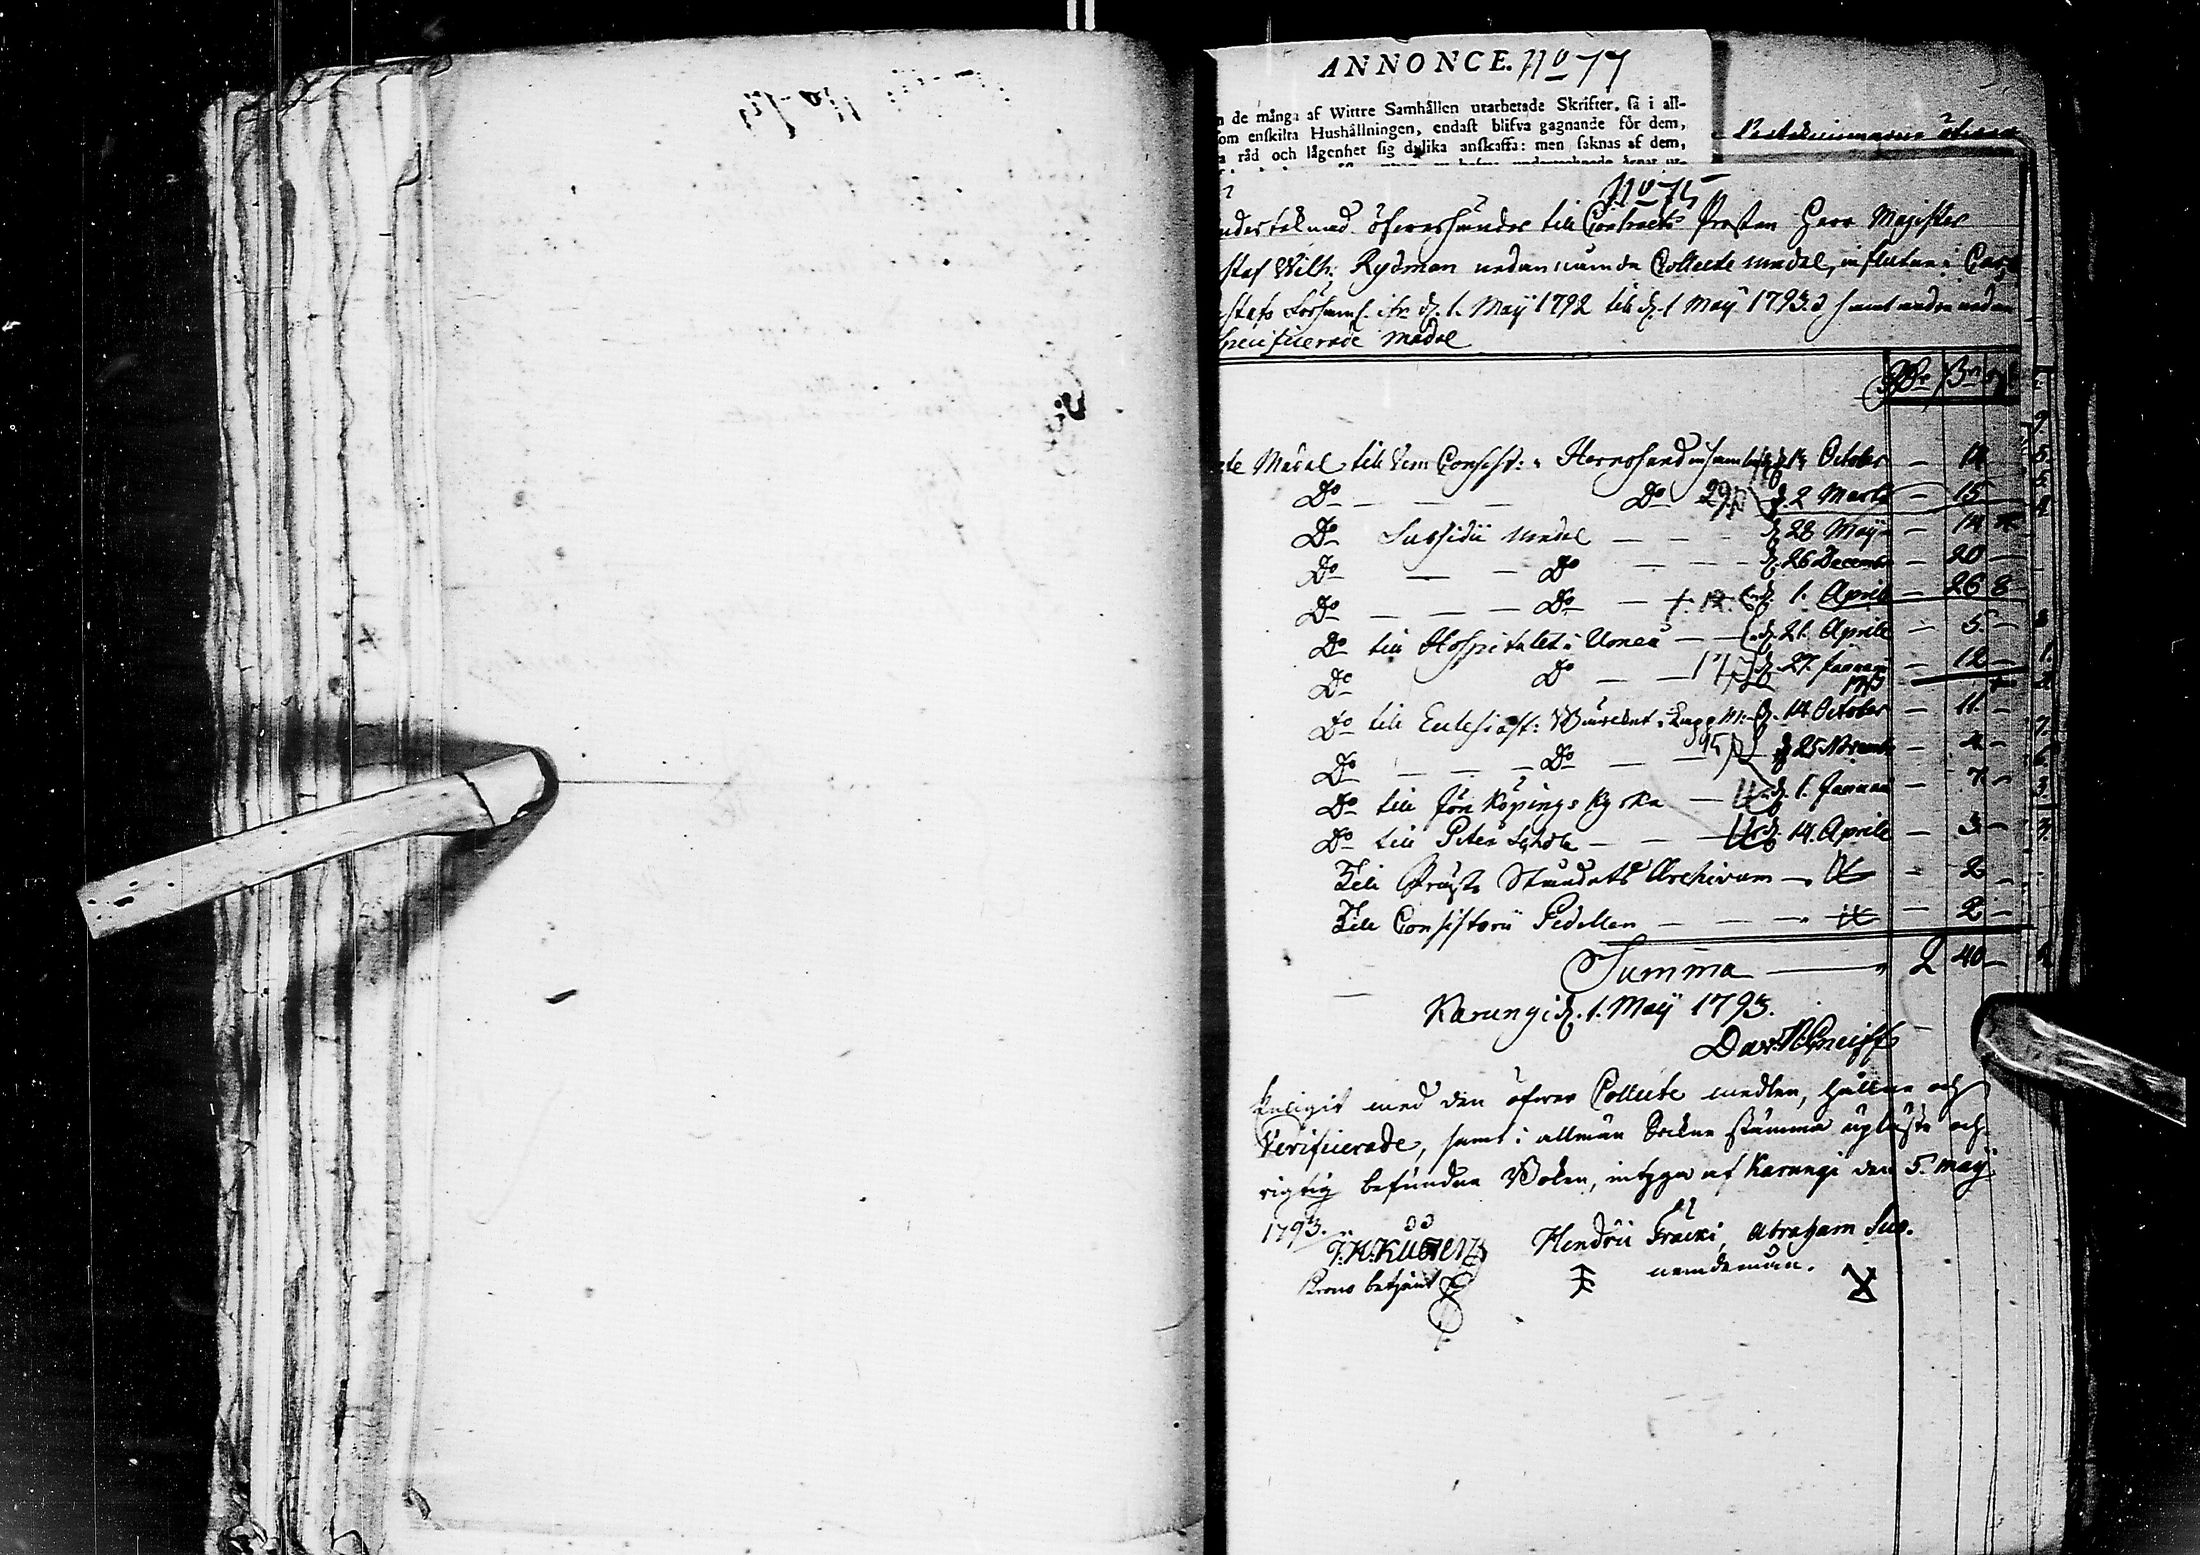 ANNONCE. No 77
n de många af Wittre Samhällen utarbetade Skrifter, så i all-
om enskilta Hushållningen, endast blifva gagnande för dem,
a råd och lägenhet sig dylika anskaffa: men saknas af dem,
No 75
nderteknad öfwersänder till Contracts Prosten Herr Magister
staf Wilh: Rydman nedannämde Collecte medel, influtne i Carl
stafs Församl. ifr. d. 1. Maij 1792 till d. 1 Maij 1793. samt andre nedan
specificerade medel
te Medel till Ven Consist: i Hernosand insamlade d. 14 October — 14
Do — — — Do 29 d. 2 Martii — 15
Do Subsidii medel — — — d. 28 Maij — 14
Do — — Do — — — d. 26 Decembr — 20 —
Do — — — Do — d. 1. April — 26 8
Do till Hospitalet i Umeå — — d. 21. Aprill — 5. —
Do Do — — 17 d. 27. Januari — 12 —
1793
Do till Eclesiast: Wärcket i Lappm: d. 14 October — 11. —
Do — — — Do — — 15 d. 25 Novemb — 4 —
Do till Jönköpings Kyrka — d. 1. Januari — 7. —
Do till Piteå Schola — — d. 14. Aprill — 3 —
Till Präste Ståndets Archivum — — 2 —
Till Consistorii Pedellen — — — — 2 —
Summa — 2 40 —
Karungi d. 1. Maij 1793.
Dav: N: Gneiff
med den öfwer Collecte medlen, hållne och
Verificerade, samt i allmän Sockne stämma upläste och
rigtig befundne Boken, intygar af Karungi den 5. Maij
1793.
Hendric Fräcki, Abraham
Krono betjänt nemdemän.